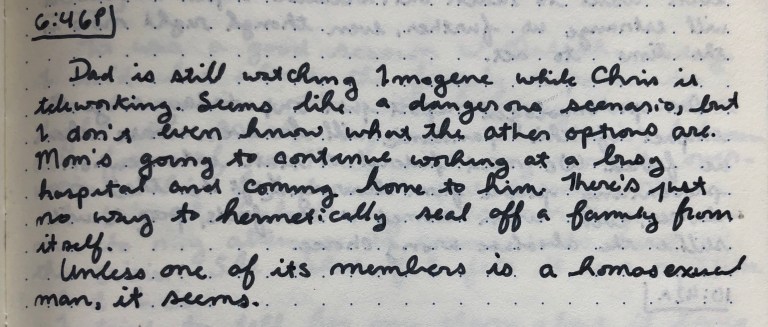 6:46P
Dad is still watching Imogene while Chris is
teleworking. Seems like a dangerous scenario, but
I don't even know what the other options are.
Mom's going to continue working at a busy
hospital and coming home to him. There's just
no way to hermetically seal off a family from
itself.
Unless one of its members is a homosexual
man, it seems.